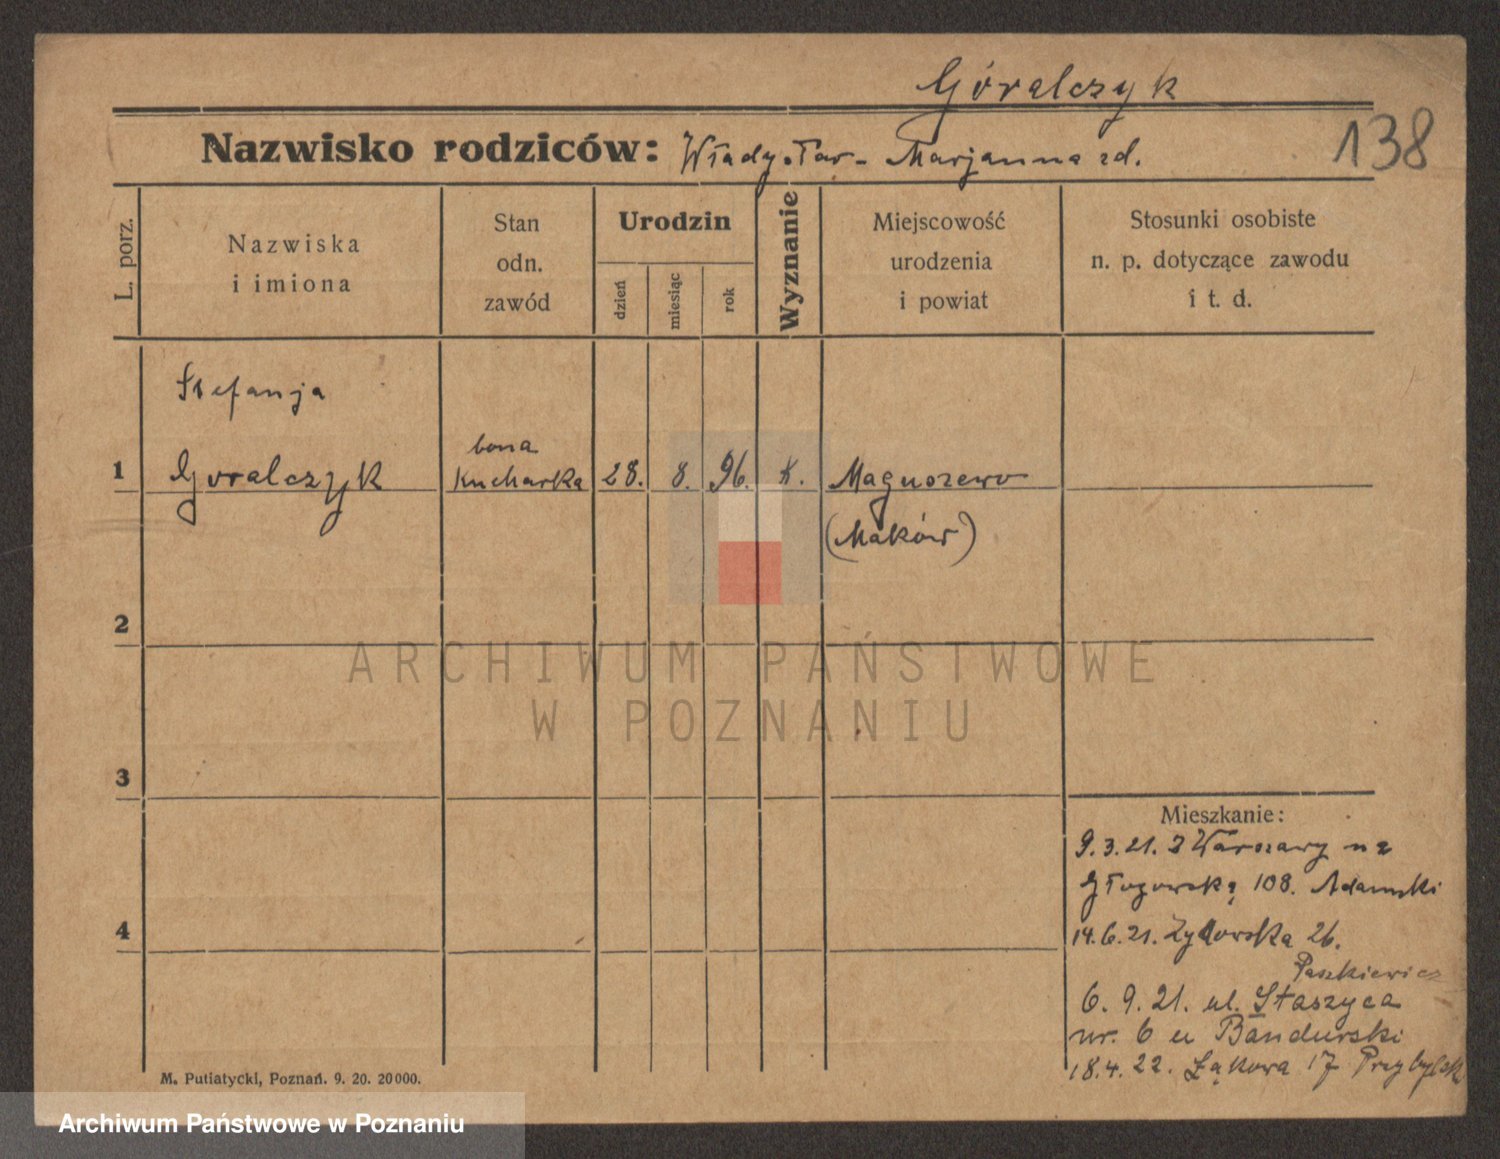 Góralczyk
138
Nazwisko rodziców: Władysław - Marjanna zd.
L. porz.
Nazwiska
i imiona
Stan
odn.
zawód
Urodzin
dzień
miesiąc
rok
Wyznanie
Miejscowość
urodzenia
i powiat
Stosunki osobiste
n. p. dotyczące zawodu
i t. d.
Stefanja
bona
1 Goralczyk Kucharka 28. 8. 96. K. Magnuszewo
(Maków)
2
ARCHIWUM PAŃSTWOWE
W POZNANIU
3
Mieszkanie:
9.3.21. z Warszawy na
Głogowską 108. Adamski
4
14.6.21. Żydowska 26.
Paszkiewicz
6. 9. 21. ul. Staszyca
nr. 6 u Bandurski
18.4. 22. Łąkowa 17 Przybylsk
M. Putiatycki, Poznań. 9. 20. 20000.
Archiwum Państwowe w Poznaniu